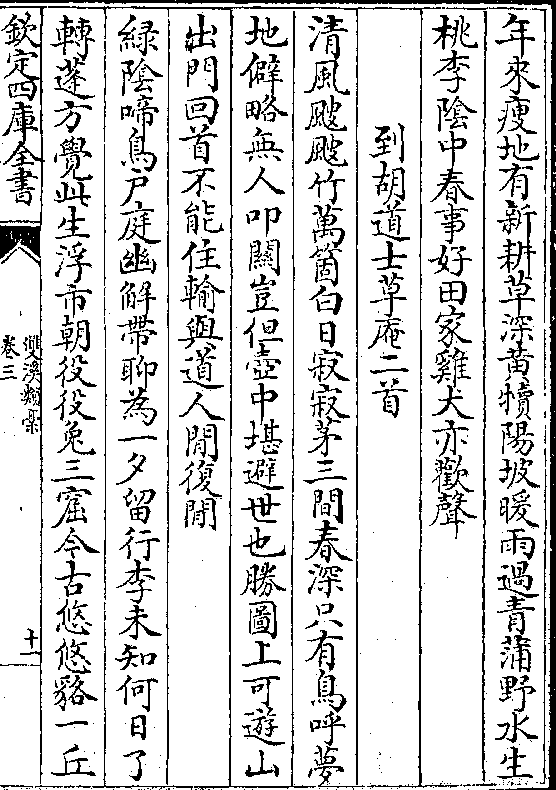 年來瘦地有新耕草深黄犢陽坡暖雨過青蒲野水生
桃李陰中春事好田家雞犬亦歡聲
到胡道士草庵二首
清風颼颼竹萬箇白日寂寂茅三間春深只有鳥呼夢
地僻略無人叩關豈但壺中堪避世也勝圖上可遊山
出門回首不能住輸與道人閒復閒
綠陰啼鳥戶庭幽解帶聊為一夕留行李未知何日了
轉蓬方覺此生浮市朝役役兔三窟今古悠悠貉一丘
欽定四庫全書
雙溪類稾
卷三
十一